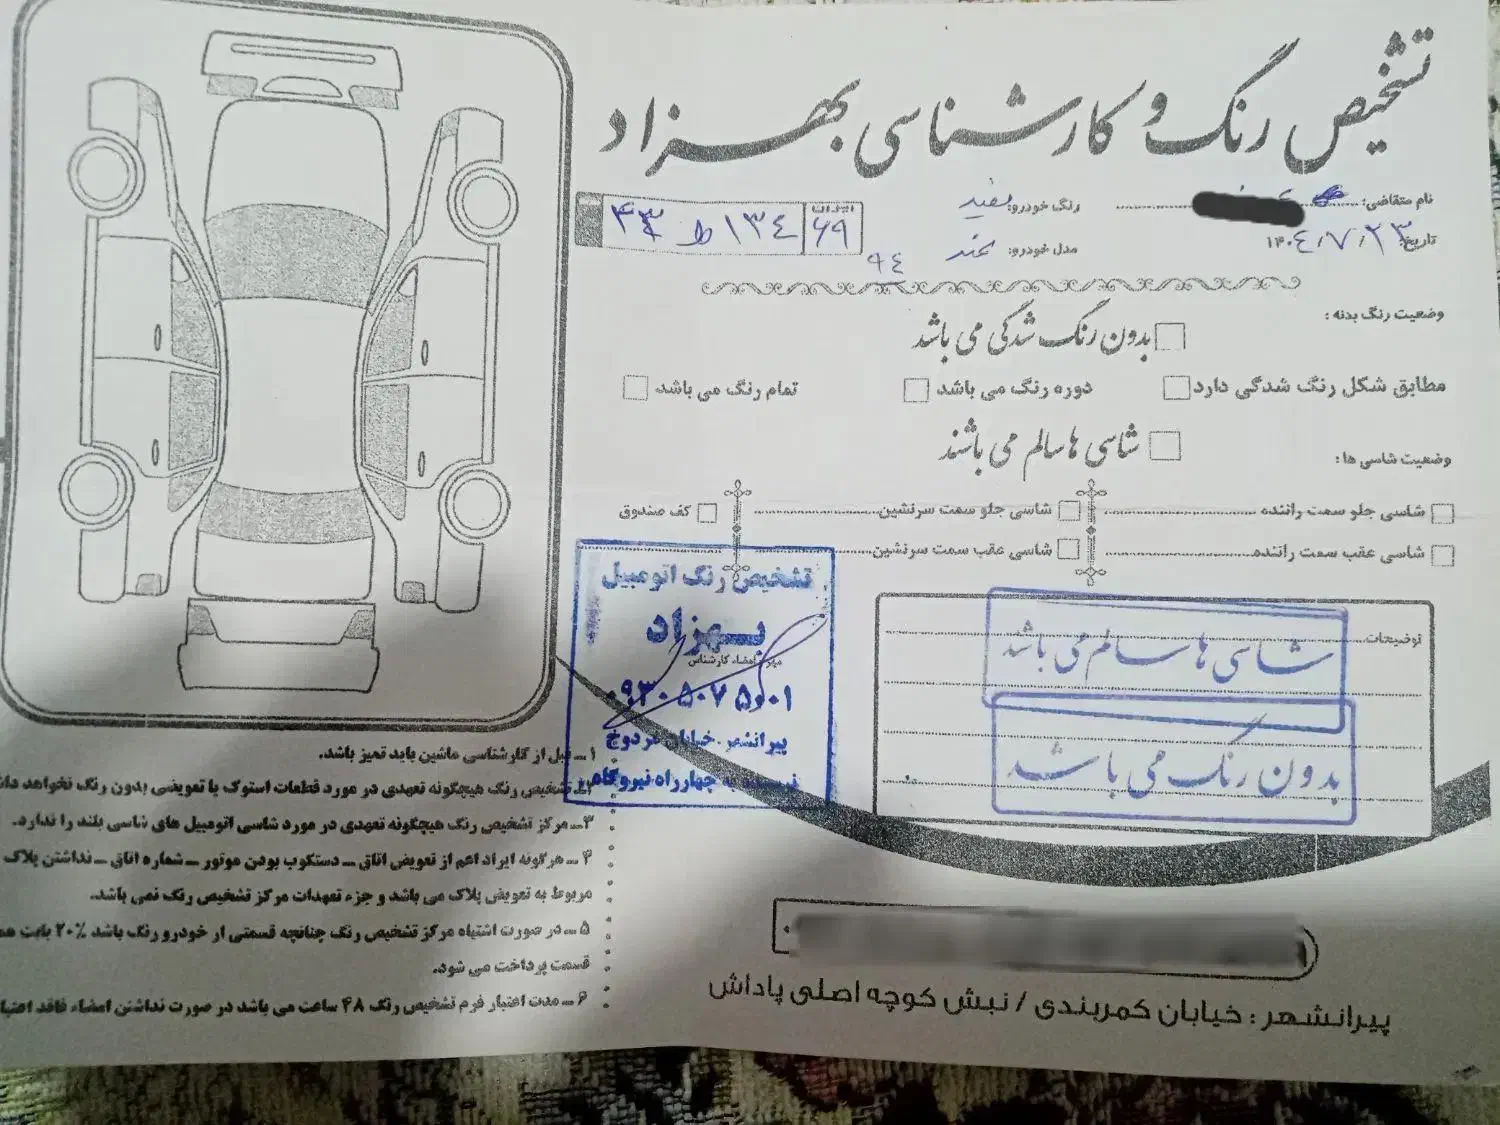 تشخیص رنگ و کارشناسی بهزاد
نام متقاضی:
رنگ خودرو: سفید
ایران ۶۹ ۱۳۴ ط ۴۳
تاریخ: ۱۴۰۴/۷/۲۳
مدل خودرو: سمند ۹۴
وضعیت رنگ بدنه :
بدون رنگ شدگی می باشد
مطابق شکل رنگ شدگی دارد
دوره رنگ می باشد
تمام رنگ می باشد
وضعیت شاسی ها :
شاسی ها سالم می باشند
شاسی جلو سمت راننده
شاسی جلو سمت سرنشین
کف صندوق
شاسی عقب سمت راننده
شاسی عقب سمت سرنشین
توضیحات
شاسی ها سالم می باشد
بدون رنگ می باشد
تشخیص رنگ اتومبیل
بهزاد
مهر و امضاء کارشناس
۰۹۳۰ ۵۰۷ ۵۰۰۱
پیرانشهر. خیابان
نرسیده به چهارراه نیروگاه
۱ــ قبل از کارشناسی ماشین باید تمیز باشد.
تشخیص رنگ هیچگونه تعهدی در مورد قطعات استوک یا تعویضی بدون رنگ نخواهد
۳ــ مرکز تشخیص رنگ هیچگونه تعهدی در مورد شاسی اتومبیل های شاسی بلند را ندارد.
۴ــ هرگونه ایراد اعم از تعویض اتاق ــ دستکوب بودن موتور ــ شماره اتاق ــ نداشتن پلاک
مربوط به تعویض پلاک می باشد و جزء تعهدات مرکز تشخیص رنگ نمی باشد.
۵ــ در صورت اشتباه مرکز تشخیص رنگ چنانچه قسمتی از خودرو رنگ باشد ۲۰٪ بابت
قسمت پرداخت می شود.
۶ــ مدت اعتبار فرم تشخیص رنگ ۴۸ ساعت می باشد در صورت نداشتن امضاء فاقد
پیرانشهر : خیابان کمربندی / نبش کوچه اصلی پاداش